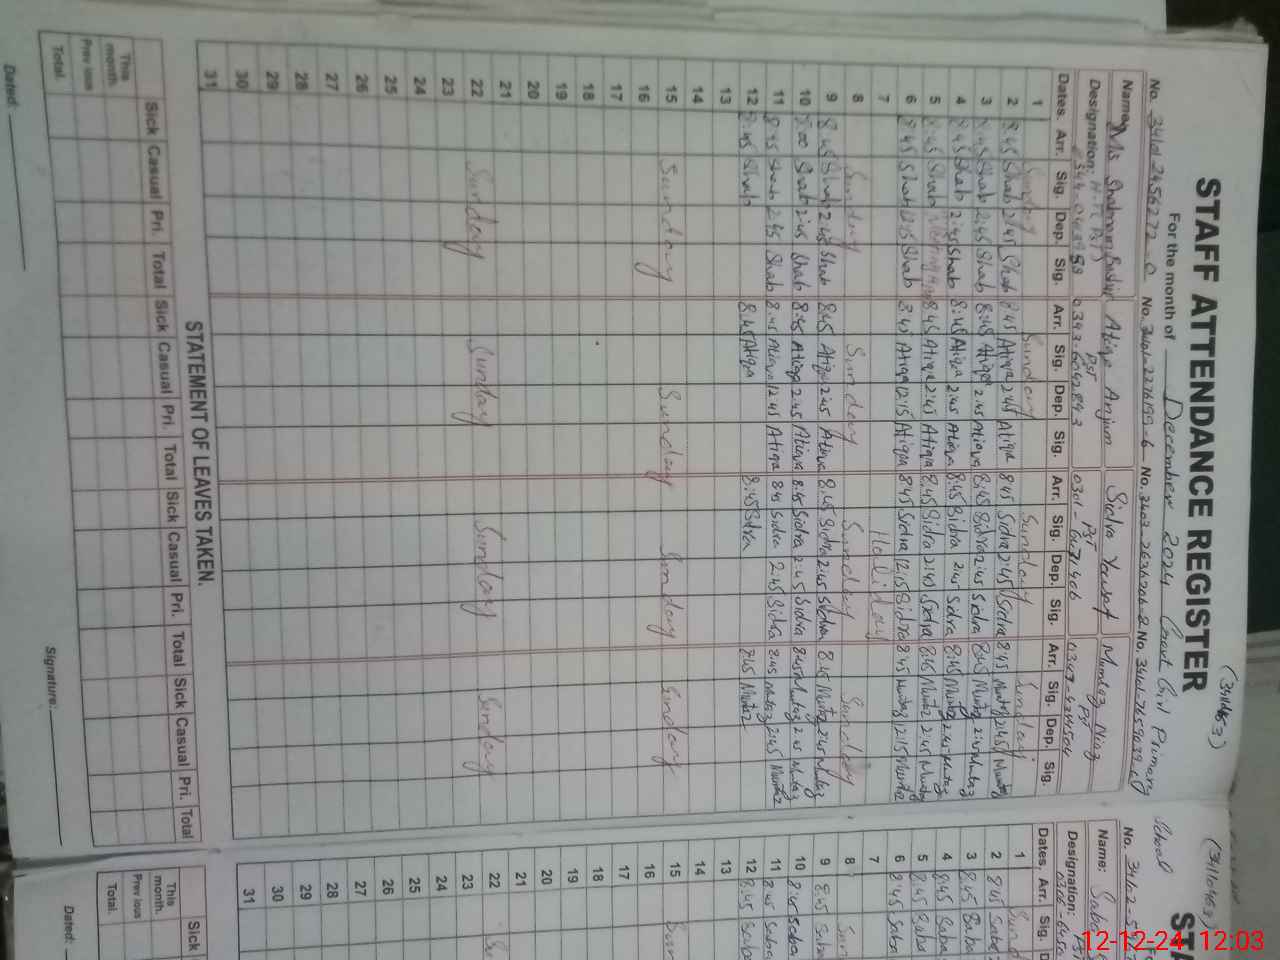 STAFF ATTENDANCE REGISTER
For the month of December 2024 Govt Girl Primary
Name: Ms Shabnam Atiqa Anjum Sidra Yousaf Mumtaz Niaz
Designation: PST PST PST
Dates. Arr. Sig. Dep. Sig. Arr. Sig. Dep. Sig. Arr. Sig. Dep. Sig. Arr. Sig. Dep. Sig.
1 Sunday Sunday Sunday Sunday
2 8:45 Shab 2:45 Shab 8:45 Atiqa 2:45 Atiqa 8:45 Sidra 2:45 Sidra 8:45 Mumtaz 2:45 Mumtaz
3 8:45 Shab 2:45 Shab 8:45 Atiqa 2:45 Atiqa 8:45 Sidra 2:45 Sidra 8:45 Mumtaz 2:45 Mumtaz
4 8:45 Shab 2:45 Shab 8:45 Atiqa 2:45 Atiqa 8:45 Sidra 2:45 Sidra 8:45 Mumtaz 2:45 Mumtaz
5 8:45 Shab 8:45 Atiqa 2:45 Atiqa 8:45 Sidra 2:45 Sidra 8:45 Mumtaz 2:45 Mumtaz
6 8:45 Shab 12:15 Shab 8:45 Atiqa 12:15 Atiqa 8:45 Sidra 12:15 Sidra 8:45 Mumtaz 12:15 Mumtaz
7 Holiday
8 Sunday Sunday Sunday Sunday
9 8:45 Shab 2:45 Shab 8:45 Atiqa 2:45 Atiqa 8:45 Sidra 2:45 Sidra 8:45 Mumtaz 2:45 Mumtaz
10 8:00 Shab 2:45 Shab 8:45 Atiqa 2:45 Atiqa 8:45 Sidra 2:45 Sidra 8:45 Mumtaz 2:45 Mumtaz
11 8:45 Shab 2:45 Shab 8:45 Atiqa 12:45 Atiqa 8:45 Sidra 2:45 Sidra 8:45 Mumtaz 2:45 Mumtaz
12 8:45 Shab 8:45 Atiqa 8:45 Sidra 8:45 Mumtaz
13
14
15 Sunday Sunday Sunday Sunday
16
17
18
19
20
21
22 Sunday Sunday Sunday Sunday
23
24
25
26
27
28
29
30
31
STATEMENT OF LEAVES TAKEN.
Sick Casual Pri. Total Sick Casual Pri. Total Sick Casual Pri. Total Sick Casual Pri. Total
This month.
Prev ious
Total.
Dated: Signature:
School
STA
No. 34102-5
Name: Saba
Designation: PST
Dates. Arr. Sig.
1
2 8:45 Saba
3 8:45 Saba
4 8:45 Saba
5 8:45 Saba
6 8:45 Saba
7
8
9 8:45 Saba
10 8:45 Saba
11 8:45 Saba
12 8:45 Saba
13
14
15
16
17
18
19
20
21
22
23
24
25
26
27
28
29
30
31
Sick
This month.
Prev ious
Total.
Dated:
12-12-24 12:03